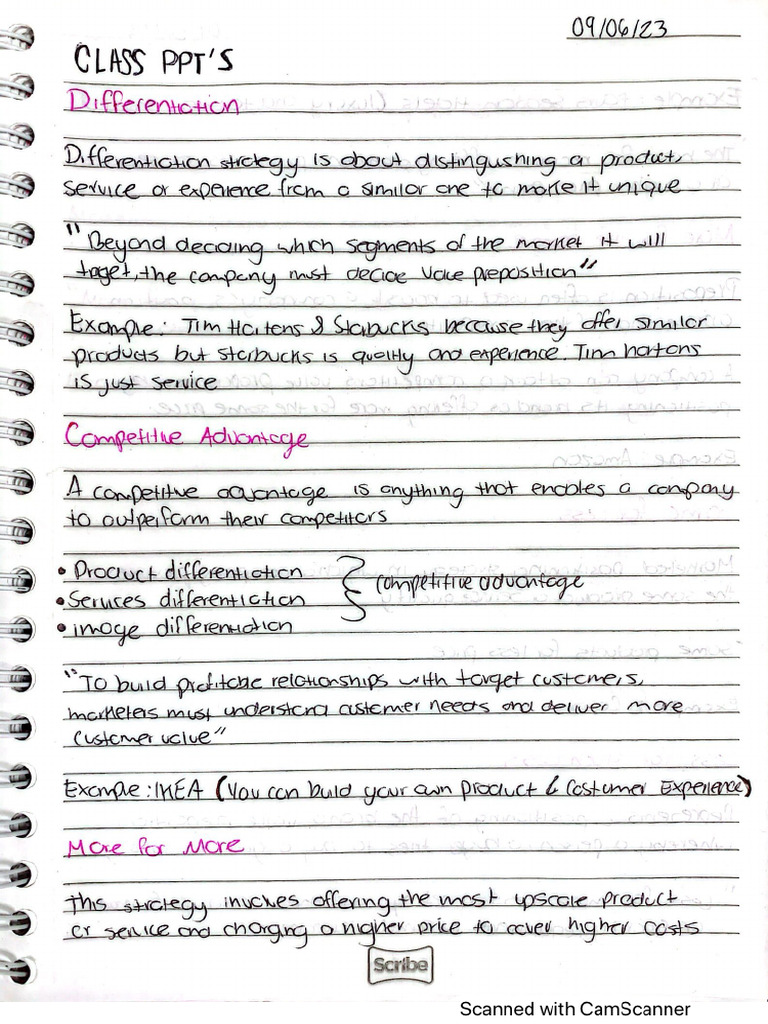 09/06/23
CLASS PPT'S
Differentiation
Differentiation strategy is about distingushing a product,
service or experience from a similar one to make it unique
"Beyond deciding which segments of the market it will
taget, the company must decide value preposition"
Example: Tim Hortons & Starbucks because they offer similar
products but starbucks is quality and experience. Tim hortons
is just service
Competitive Advantage
A competitive advantage is anything that enables a company
to outperform their competitors
• Product differentiation
competitive advantage
• Services differentiation
• image differentiation
"To build profitable relationships with target customers,
marketers must understand customer needs and deliver more
customer value"
Example: IKEA (You can build your own product & Costumer Experience)
More for More
This strategy involves offering the most upscale product
or service and charging a higher price to cover higher costs
Scribe
Scanned with CamScanner